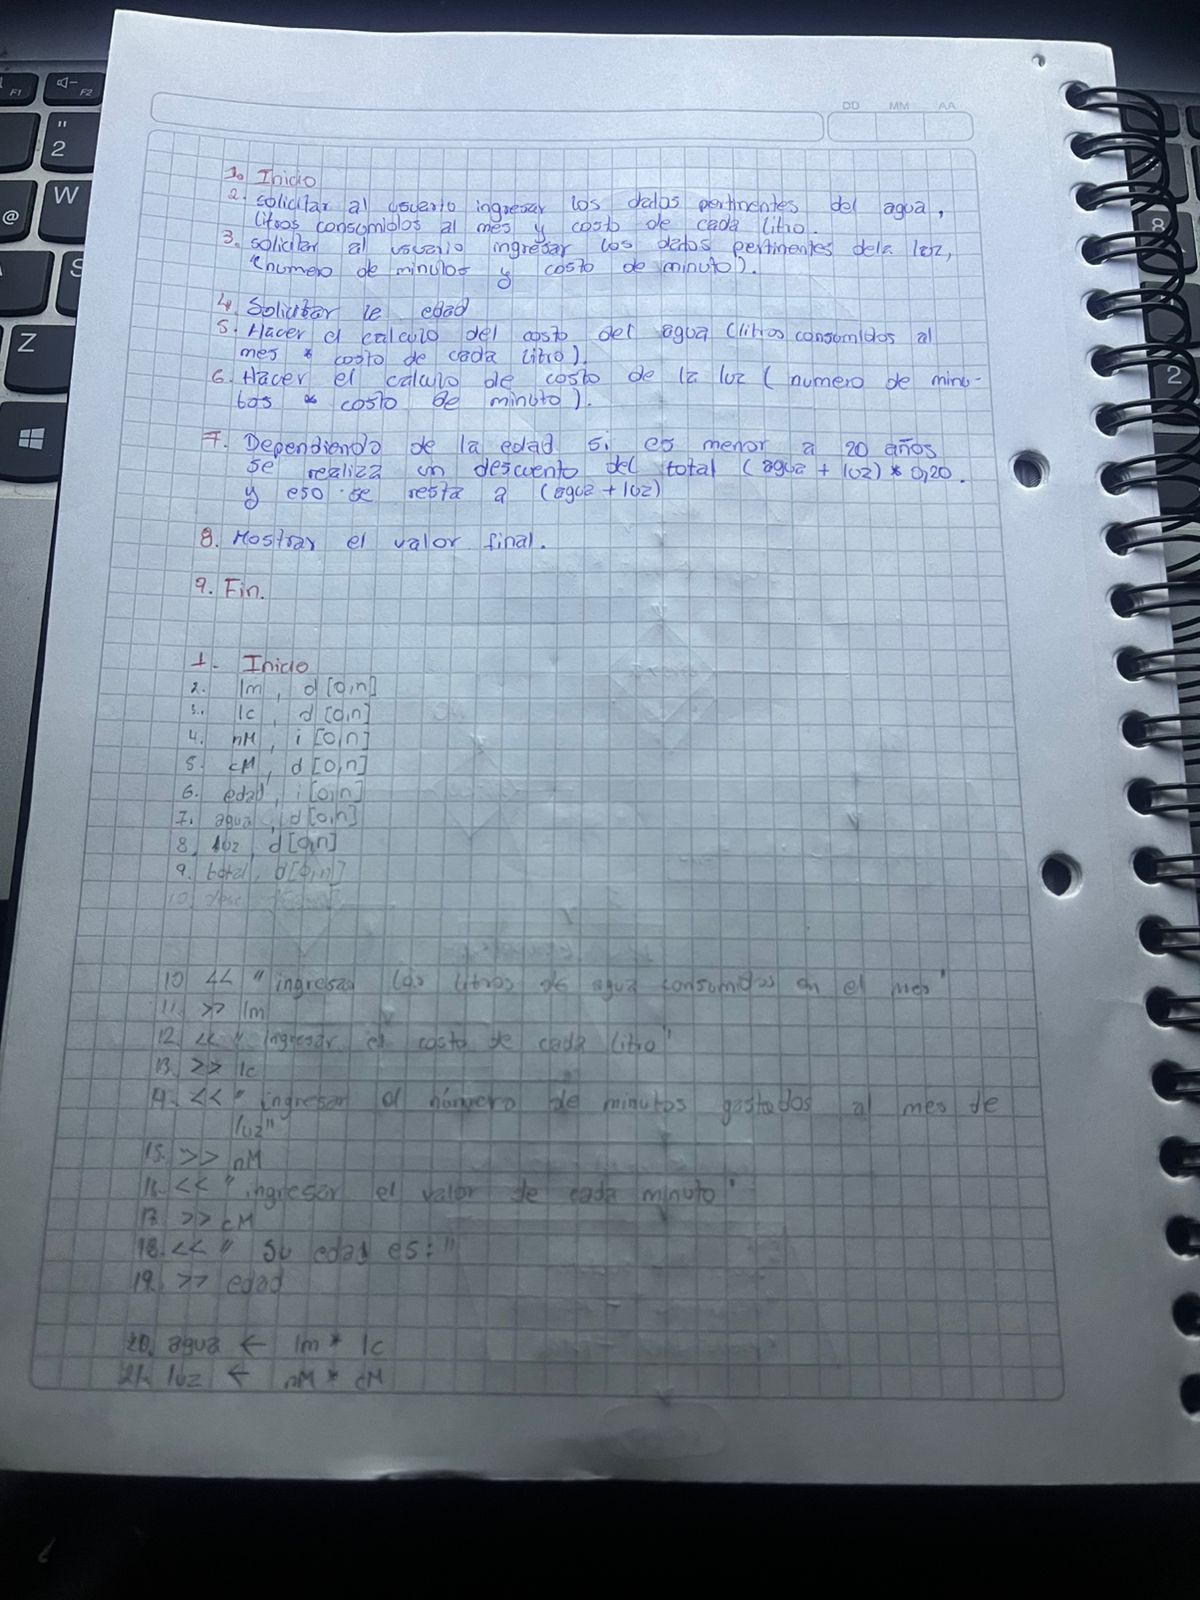 DD MM AA
1. Inicio
2. solicitar al usuario ingresar los datos pertinentes del agua,
litros consumidos al mes y costo de cada litro.
3. solicitar al usuario ingresar los datos pertinentes dela luz,
(numero de minutos y costo de minuto).
4. Solicitar le edad
5. Hacer el calculo del costo del agua (litros consumidos al
mes * costo de cada litro).
6. Hacer el calculo de costo de la luz (numero de minu-
tos * costo de minuto).
7. Dependiendo de la edad si es menor a 20 años
se realiza un descuento del total (agua + luz) * 0,20.
y eso se resta a (agua + luz)
8. Mostrar el valor final.
9. Fin.
1. Inicio
2. lm, d [0,n]
3. lc, d [0,n]
4. nM, i [0,n]
5. cM, d [0,n]
6. edad, i [0,n]
7. agua, d [0,n]
8. luz, d [0,n]
9. total, d [0,n]
10. desc
10 << "ingresar los litros de agua consumidos en el mes"
11. >> lm
12. << "ingresar el costo de cada litro"
13. >> lc
14. << "ingresar el número de minutos gastados al mes de
luz"
15. >> nM
16. << "ingresar el valor de cada minuto"
17. >> cM
18. << " Su edad es: "
19. >> edad
20. agua ← lm * lc
21. luz ← nM * cM
F1
F2
"
2
@
W
S
Z
8
2